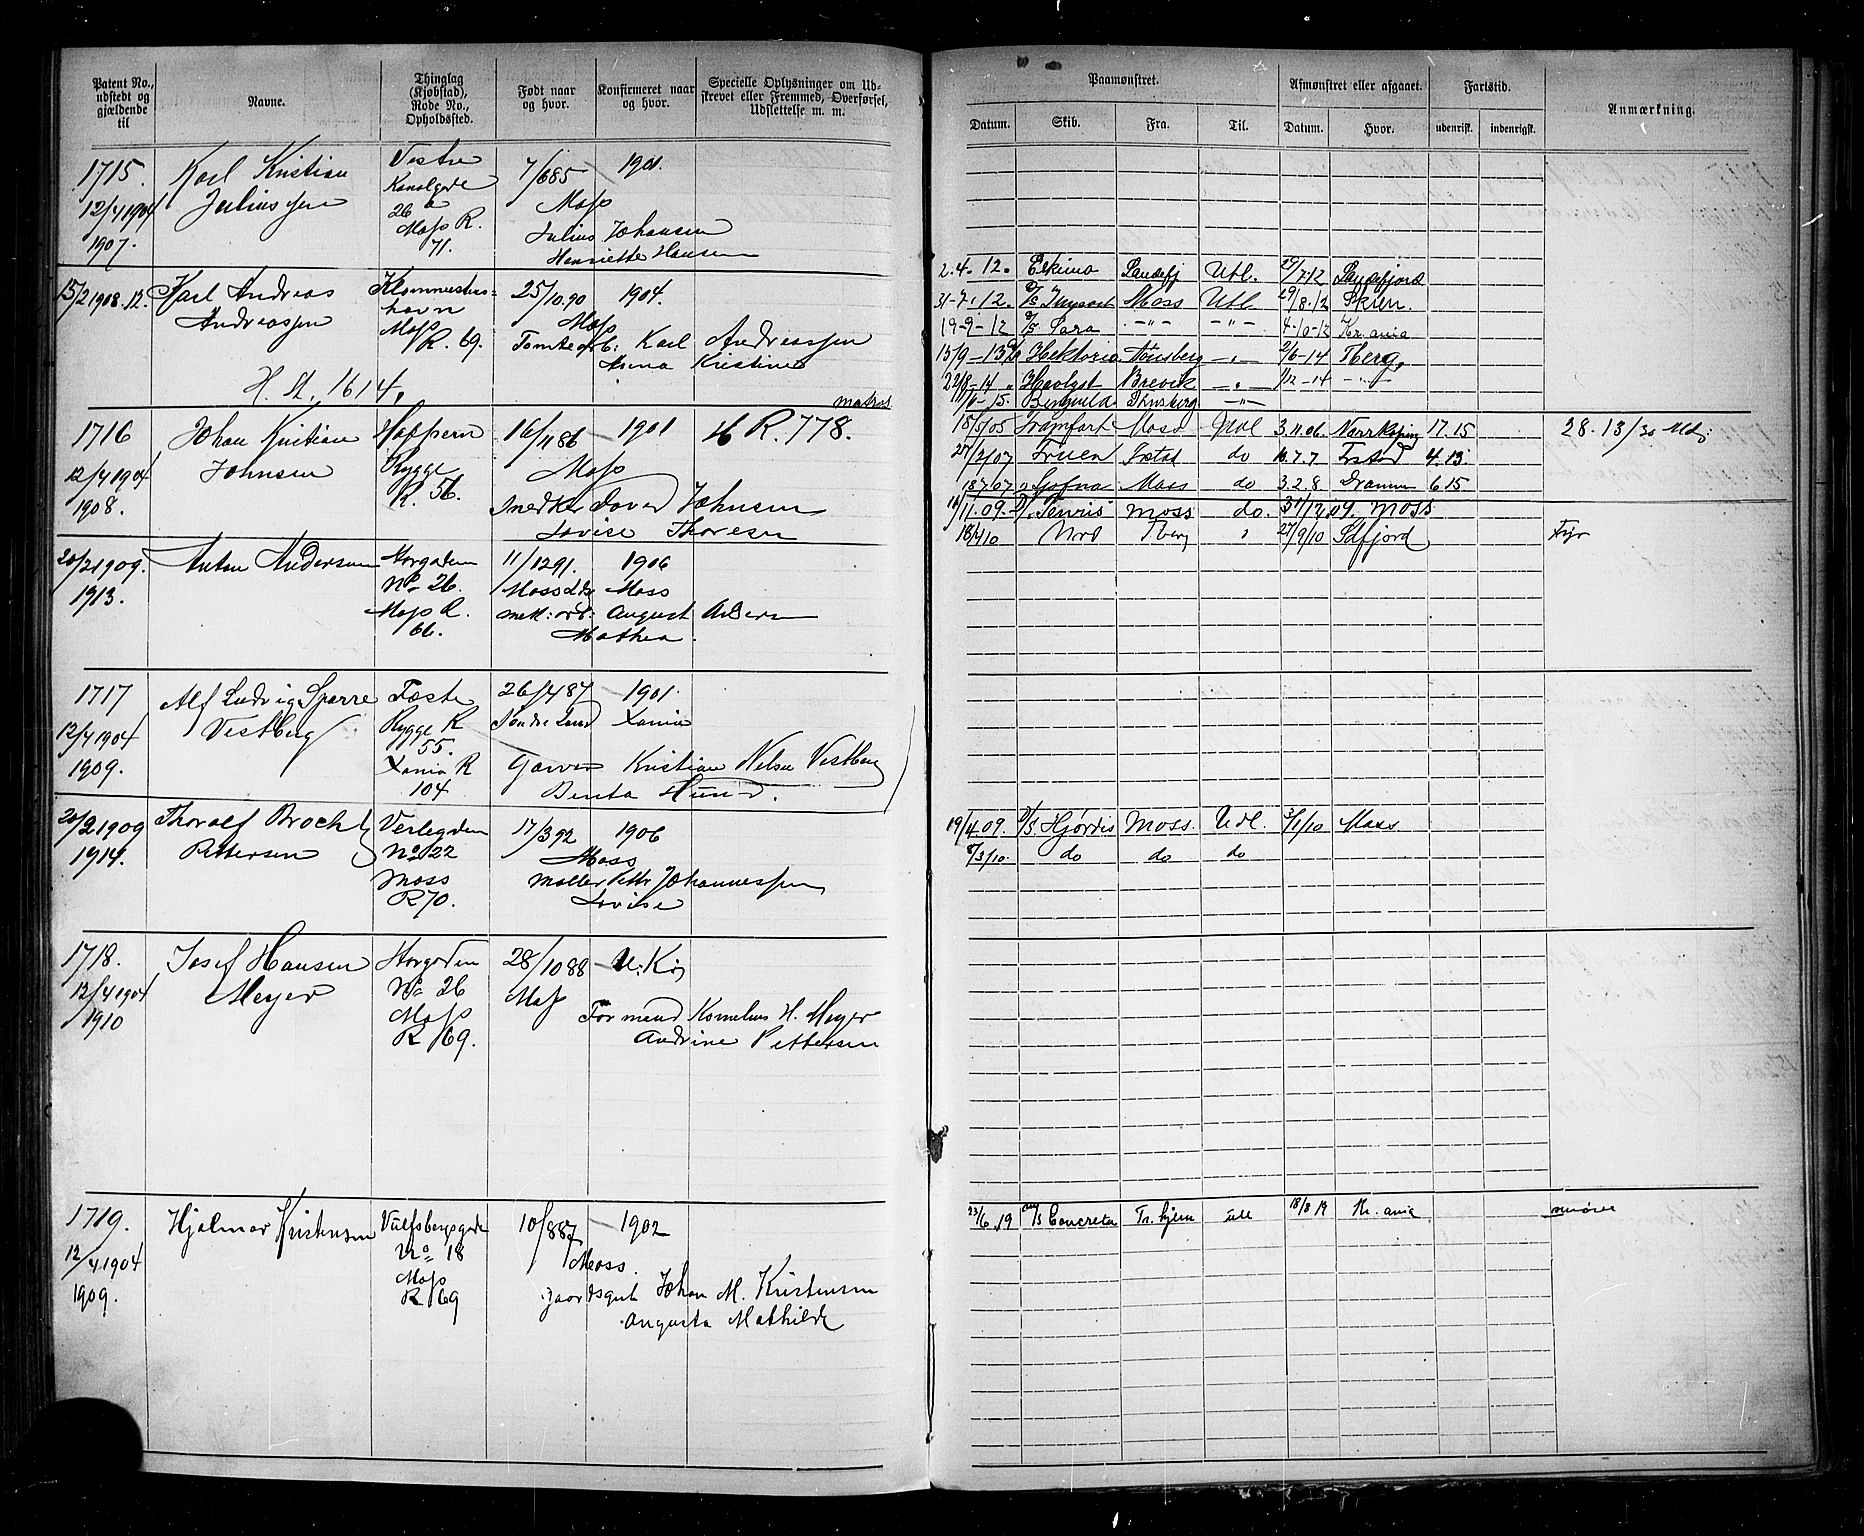 Patent No., udstedt og gjældende til
Navne.
Thinglag (Kjøbstad), Rode No., Opholdssted.
Født naar og hvor.
Konfirmeret naar og hvor.
Specielle Oplysninger om Udskrevet eller Fremmed, Overførsel, Udslettelse m. m.
Paamønstret.
Datum. Skib. Fra. Til.
Afmønstret eller afgaaet.
Datum. Hvor.
Fartstid.
udenrigsk. indenrigsk.
Anmærkning.
1715. Karl Kristian Vestre 7/6 85 1901.
12/4 1904 Juliussen Kanalgade Moss
1907. 26 a
Moss R. Julius Johansen
71. Henriette Hansen
15/2 1908. 12. Karl Andreas 25/10.90 1904.
Andreassen havn Moss
Moss
R. 69. Tomtearb: Karl Andreassen
Anna Kristine
H. St. 1614.
2.4.12. Eskimo Sandefj Utl. 12 Sandefjord
31-7.12. Moss Utl. 29/8.12 Skien.
19-9-12 D/S Sara -"- -"- 4-10-12 Kr.ania
15/9-13 Hektoria Tønsberg -"- 2/6-14 Tberg,
22/8-14 Havlyst Brevik -"- 1/12-14 -"-
15. Tønsberg -"-
matros
1716 Johan Kristian 16/11 86 1901 R. 778.
12/4 1904 Johnsen Rygge Moss
1908. R. 56. Snedker Johnsen
Lovise Thoresen
18/5 05 Framfart Moss Udl 3.11.06. Norrkøping 17.15 28.13/30 Md;
27/2/07 Fruen do 10.7.7 4.13.
18 7/07 Moss do 3.2.8. Drammen 6 15
11.09. Moss do. 31/12.09. Moss
18/4 10 Nord Tberg 27/9/10 Sdfjord Fyr
20/2 1909. Anton Andersen Storgaden 11/12 91. 1906
1913. No 26. Moss Moss
Moss R. arb: August Andersen
66. Mathea.
1717 Alf Ludvig Sparre 26/4 87 1901.
12/4 1904 Vestberg Rygge R Xania
1909. 55.
Xania R Garver Kristian Nelsen Vestberg
104 Benta Hund.
20/2 1909 Thoralf Brochs Verlegaden 17/3 92 1906
1914. Pettersen No 22 Moss
Moss Møller Pettr Johannessen
R 70. Lovise
19/4 09. D/S Hjørdis Moss. Udl. 1/10 Moss
8/3/10. do do do
1718. Josef Hansen Storgaden 28/10 88 U. K.
12/4 1904 Meyer No 26 Moss
1910 Moss Formand Kornelius H. Meyer
R 69. Andrine Pettersen
1719. Hjalmar Kristensen Vulfsbergsgaden 10/8 87 1902
12/4 1904 No 18 Moss.
1909. Moss Johan M. Kristensen
R 69 Augusta Mathilde
23/6 19 Concreta Tr.hjem 18/8 19 Kr.ania